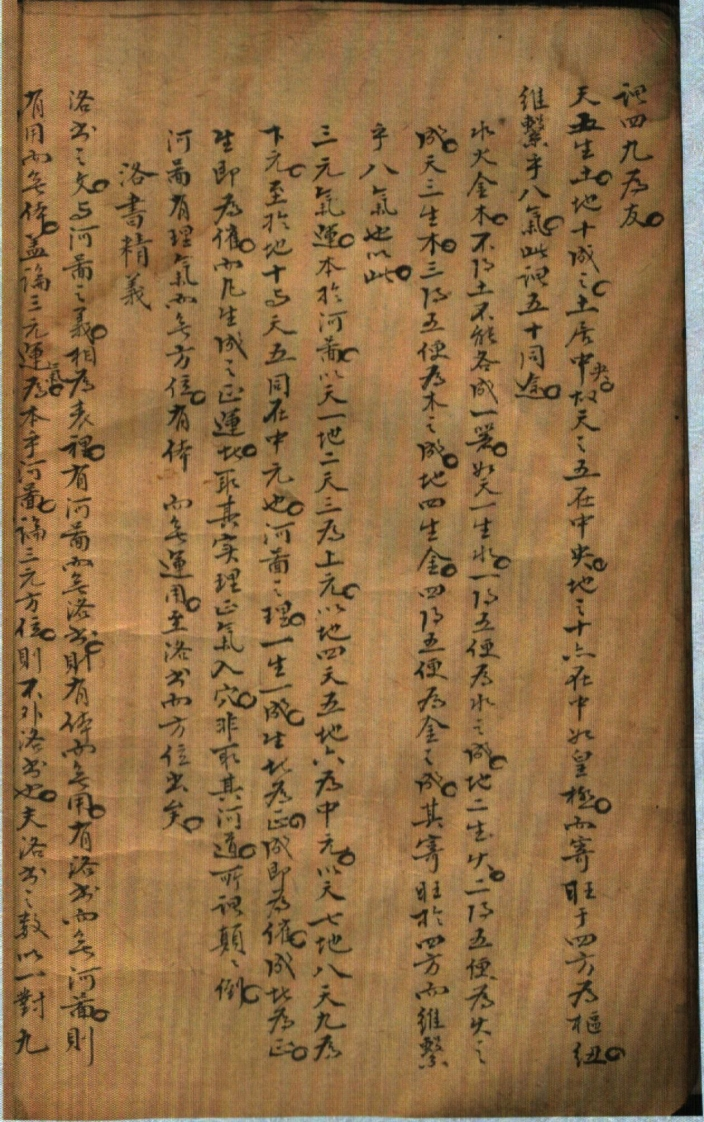 謂四九為友
天五生土地十成之土居中央故天之五在中央地之十亦在中如皇極而寄旺于四方為樞紐
維繫乎八氣此謂五十同途
水火金木不得土不能各成一器如天一生水一得五便為水之成地二生火二得五便為火之
成天三生木三得五便為木之成地四生金四得五便為金之成其寄旺於四方而維繫
乎八氣也以此
三元氣運本於河圖以天一地二天三為上元以地四天五地六為中元以天七地八天九為
下元至於地十與天五同在中元也河圖之理一生一成生此為正成即為催成此為正
生即為催而凡生成之正運此取其实理正氣入穴非取其河道所謂顛之倒
河圖有理氣而無方位有体而無運用至洛书而方位出矣
洛書精義
洛书之文与河圖之義相為表裡有河圖而無洛书則有体而無用有洛书而無河圖則
有用而無体盖論三元運為本乎河圖論三元方位則不外洛书也夫洛书之数以一對九